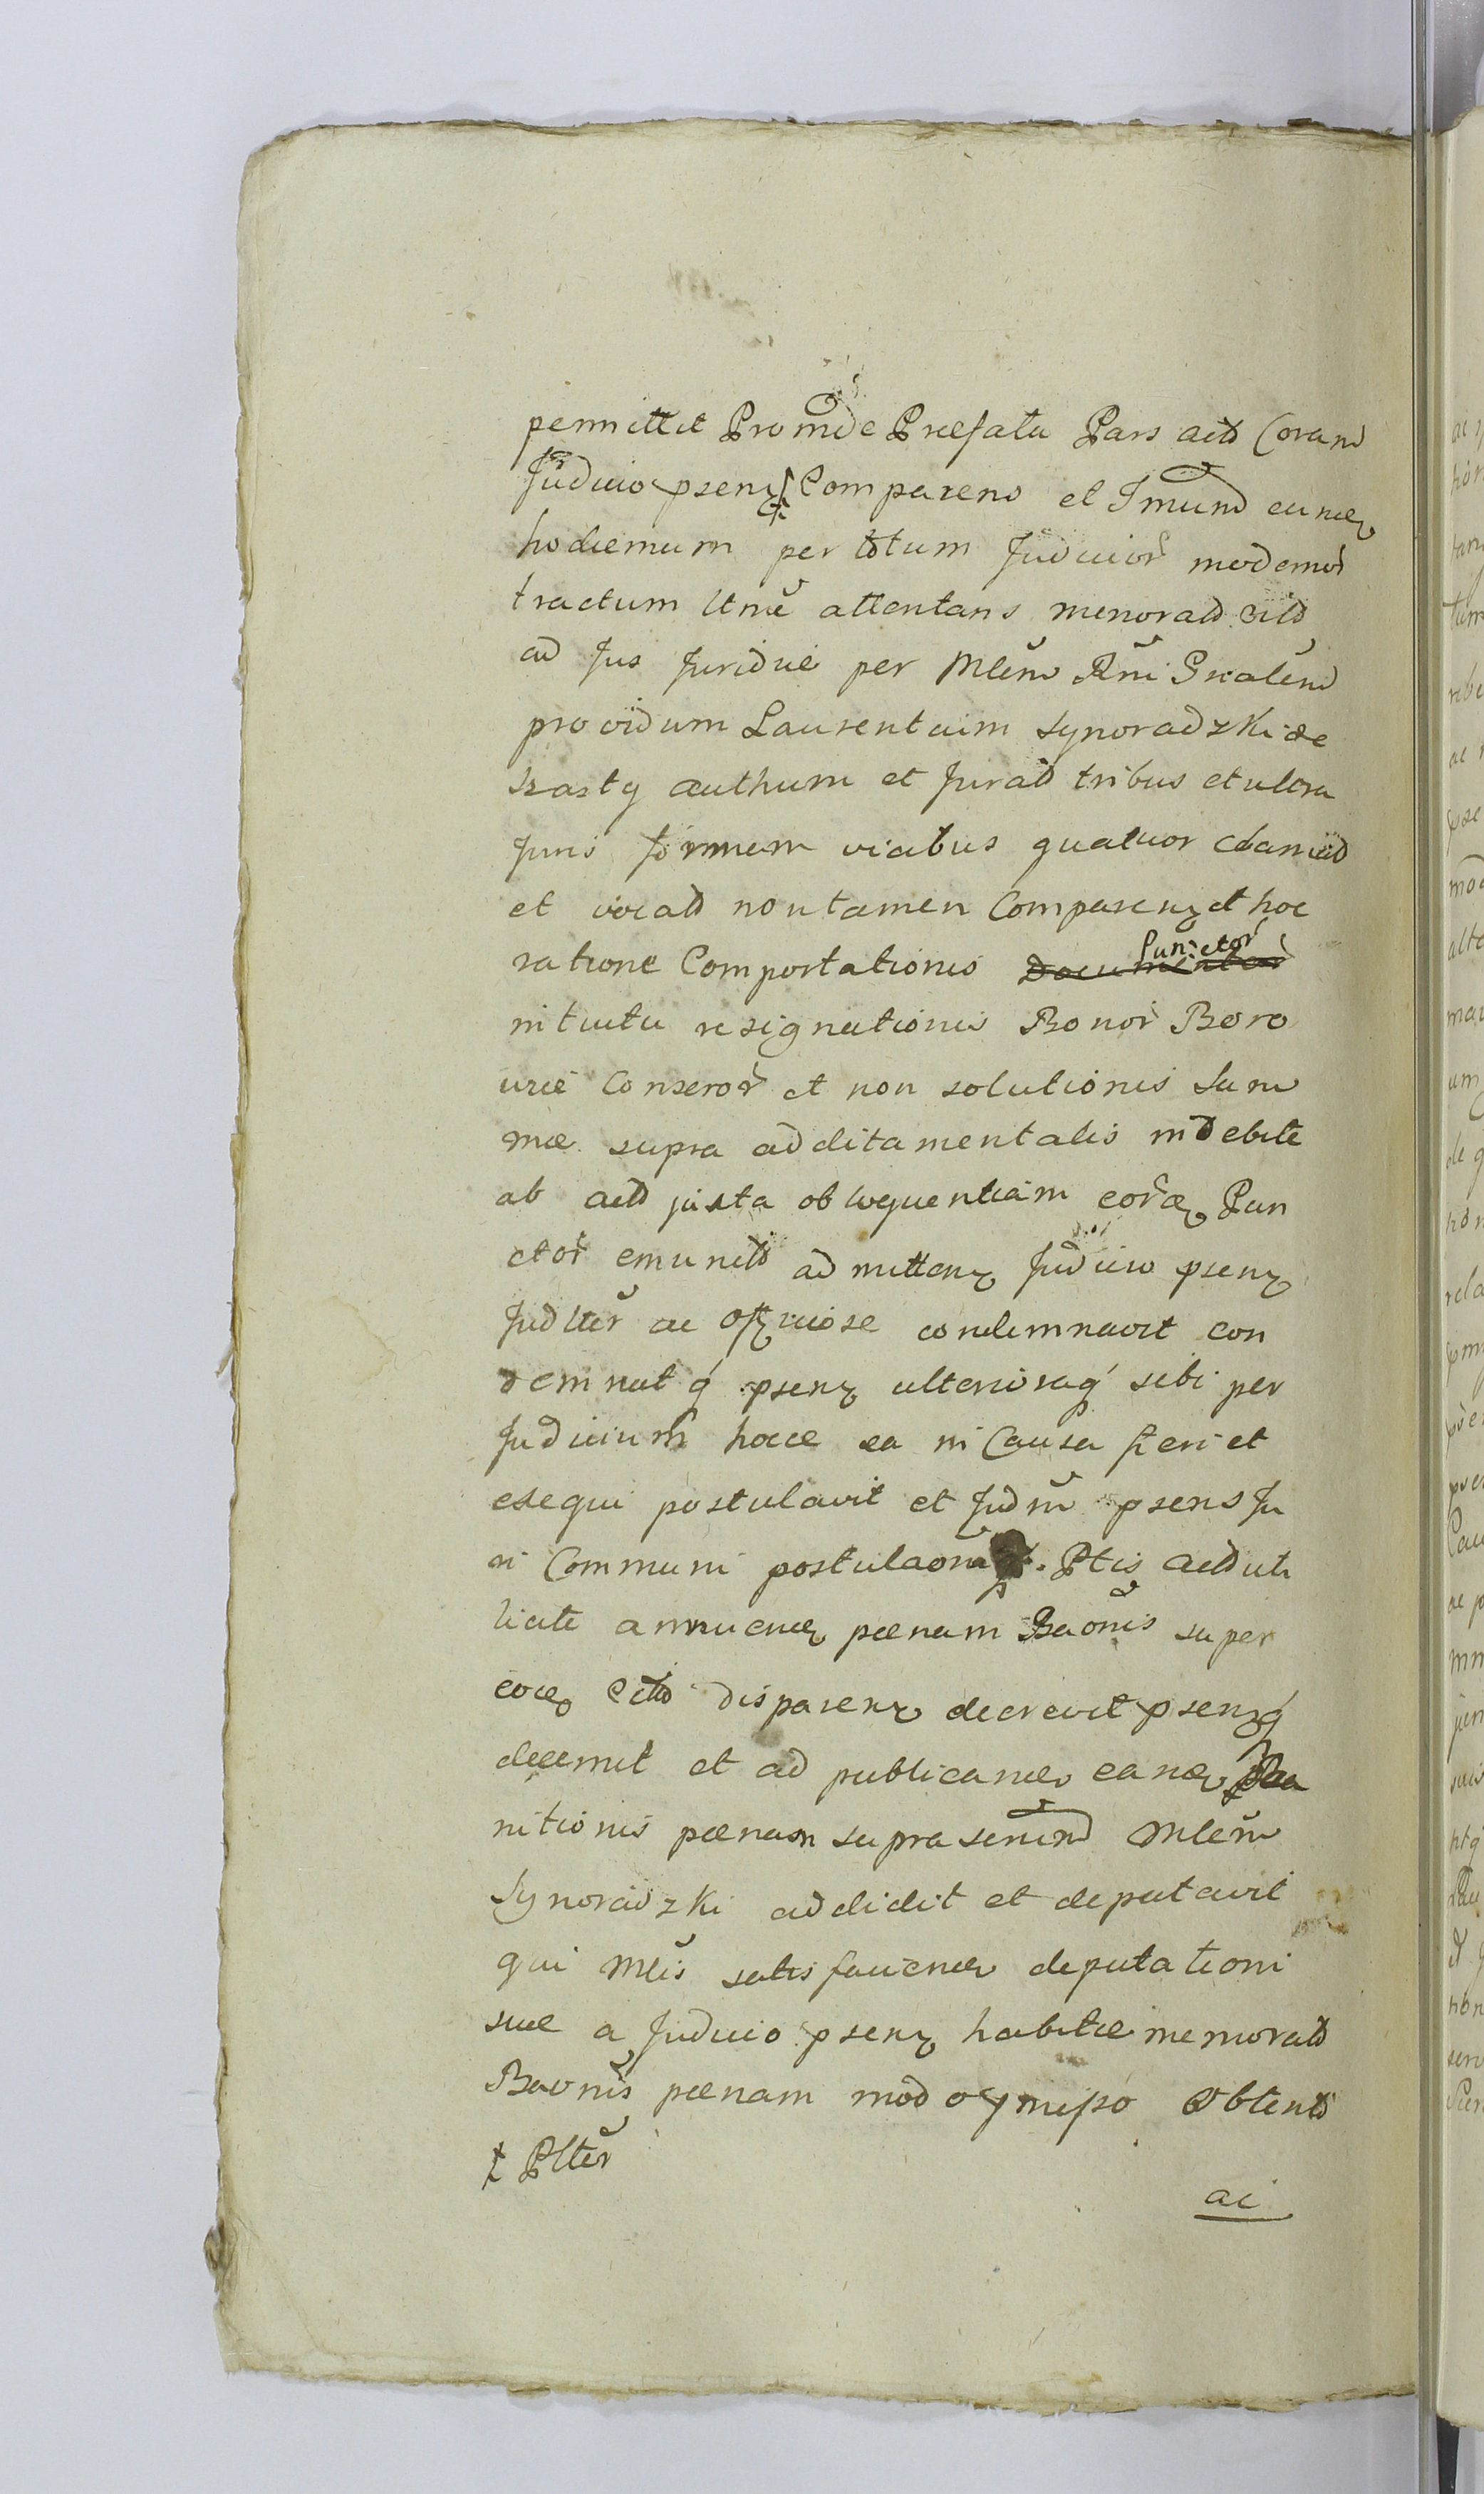 permittit Proinde Praefata Pars actō Coram
Judicio psenꝫ ⁂ Comparens et Tmum eundꝫ
hodiernum per totum Judicior modernor
tractum ltmē attentans memorat citō
ad Jus Juridicē per Mlem Rni Gnalem
providum Laurentium Synoradzki de
hasty authum et jurat tribus et ultra
Juris formam viabus quatuor clamat
et vocat non tamen Comparenꝫ et hoc
ratione Comportationis Documentor Punctor
intuitu resignationis Bonor Boro
wie Conseror et non solutionis Sum
mae supra additamentalis indebite
ab actō juxta obloquentiam eordꝫ Pun
ctor emunitō admittenꝫ Judicio psenꝫ
Judlter ac offuciose condemnavit con
demnatq psenꝫ ulterioraq sibi per
Judicium hocce ea in Causa fieri et
exequi postulavit et Judm psens Ju
ri Communi postulaonꝫ Ptis actō uti
licite annuendꝫ paenam Baonis super
eodꝫ citō disparenꝫ decrevit psenꝫq
decernit et ad publicandꝫ eandꝫ Ba
nitionis paenam suprascnmd Mlem
Synoradzki addidit et deputavit
qui Mlis satisfaciendo deputationi
suae a Judicio psenꝫ habitae memorat
Baonis paenam modo praemisso Obtent
⁂ Plter
ac